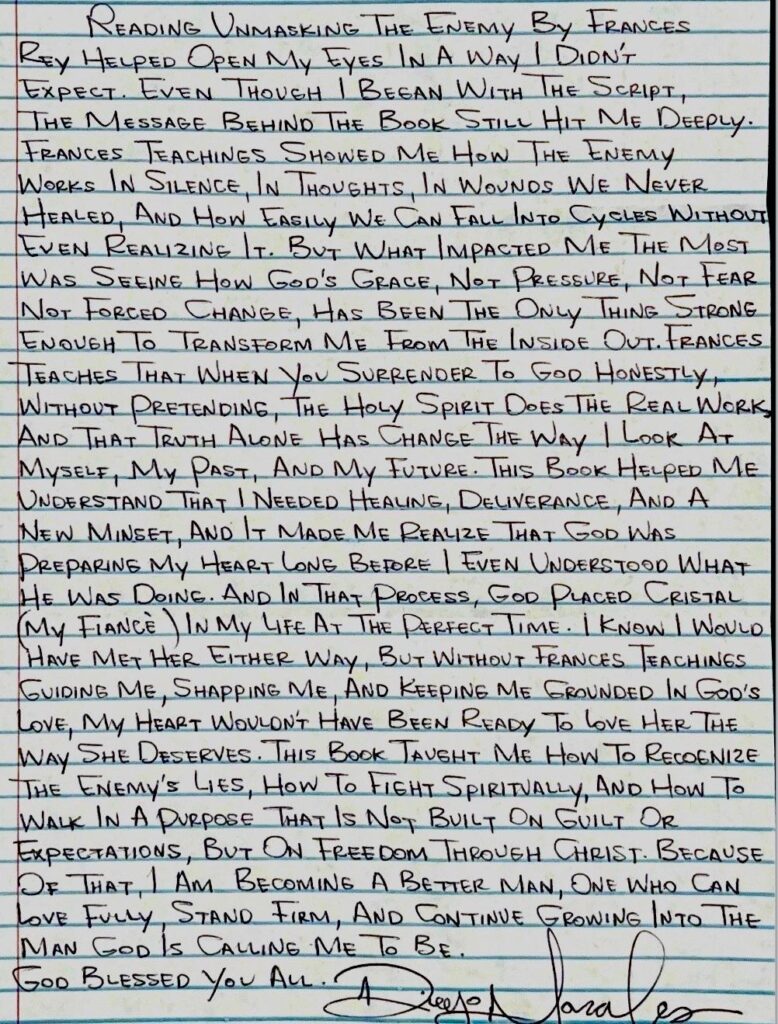 Reading Unmasking The Enemy By Frances
Rey Helped Open My Eyes In A Way I Didn't
Expect. Even Though I Began With The Script,
The Message Behind The Book Still Hit Me Deeply.
Frances Teachings Showed Me How The Enemy
Works In Silence, In Thoughts, In Wounds We Never
Healed, And How Easily We Can Fall Into Cycles Without
Even Realizing It. But What Impacted Me The Most
Was Seeing How God's Grace, Not Pressure, Not Fear
Not Forced Change, Has Been The Only Thing Strong
Enough To Transform Me From The Inside Out. Frances
Teaches That When You Surrender To God Honestly,
Without Pretending, The Holy Spirit Does The Real Work,
And That Truth Alone Has Change The Way I Look At
Myself, My Past, And My Future. This Book Helped Me
Understand That I Needed Healing, Deliverance, And A
New Minset, And It Made Me Realize That God Was
Preparing My Heart Long Before I Even Understood What
He Was Doing. And In That Process, God Placed Cristal
(My Fiancè) In My Life At The Perfect Time. I Know I Would
Have Met Her Either Way, But Without Frances Teachings
Guiding Me, Shapping Me, And Keeping Me Grounded In God's
Love, My Heart Wouldn't Have Been Ready To Love Her The
Way She Deserves. This Book Taught Me How To Recognize
The Enemy's Lies, How To Fight Spiritually, And How To
Walk In A Purpose That Is Not Built On Guilt Or
Expectations, But On Freedom Through Christ. Because
Of That, I Am Becoming A Better Man, One Who Can
Love Fully, Stand Firm, And Continue Growing Into The
Man God Is Calling Me To Be.
God Blessed You All. Diego Morales